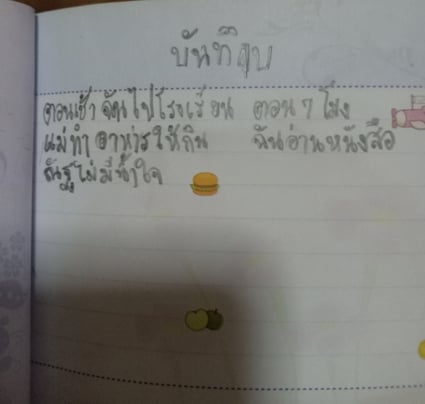 บันทึก
ตอนเช้า ฉันไปโรงเรียน ตอน 7 โมง
แม่ทำ อาหารให้กิน ฉันอ่านหนังสือ
ไม่มีน้ำใจ